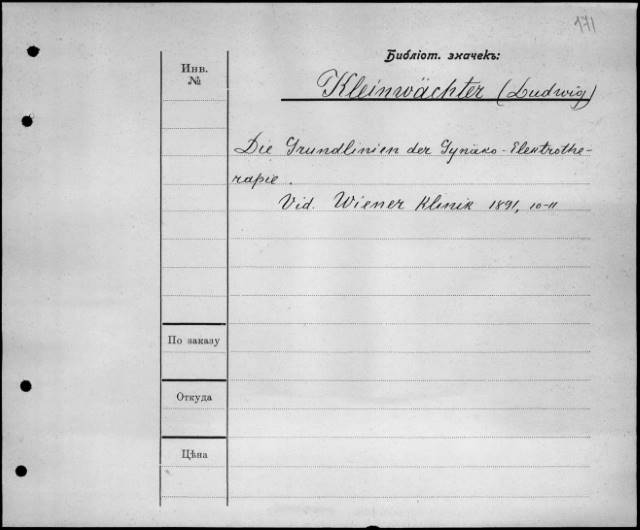 171
Библіот. значекъ:
Инв.
№
Kleinwächter (Ludwig)
Die Grundlinien der Gynäko-Elektrothe-
rapie.
Vid. Wiener Klinik 1891, 10-11
По заказу
Откуда
Цѣна